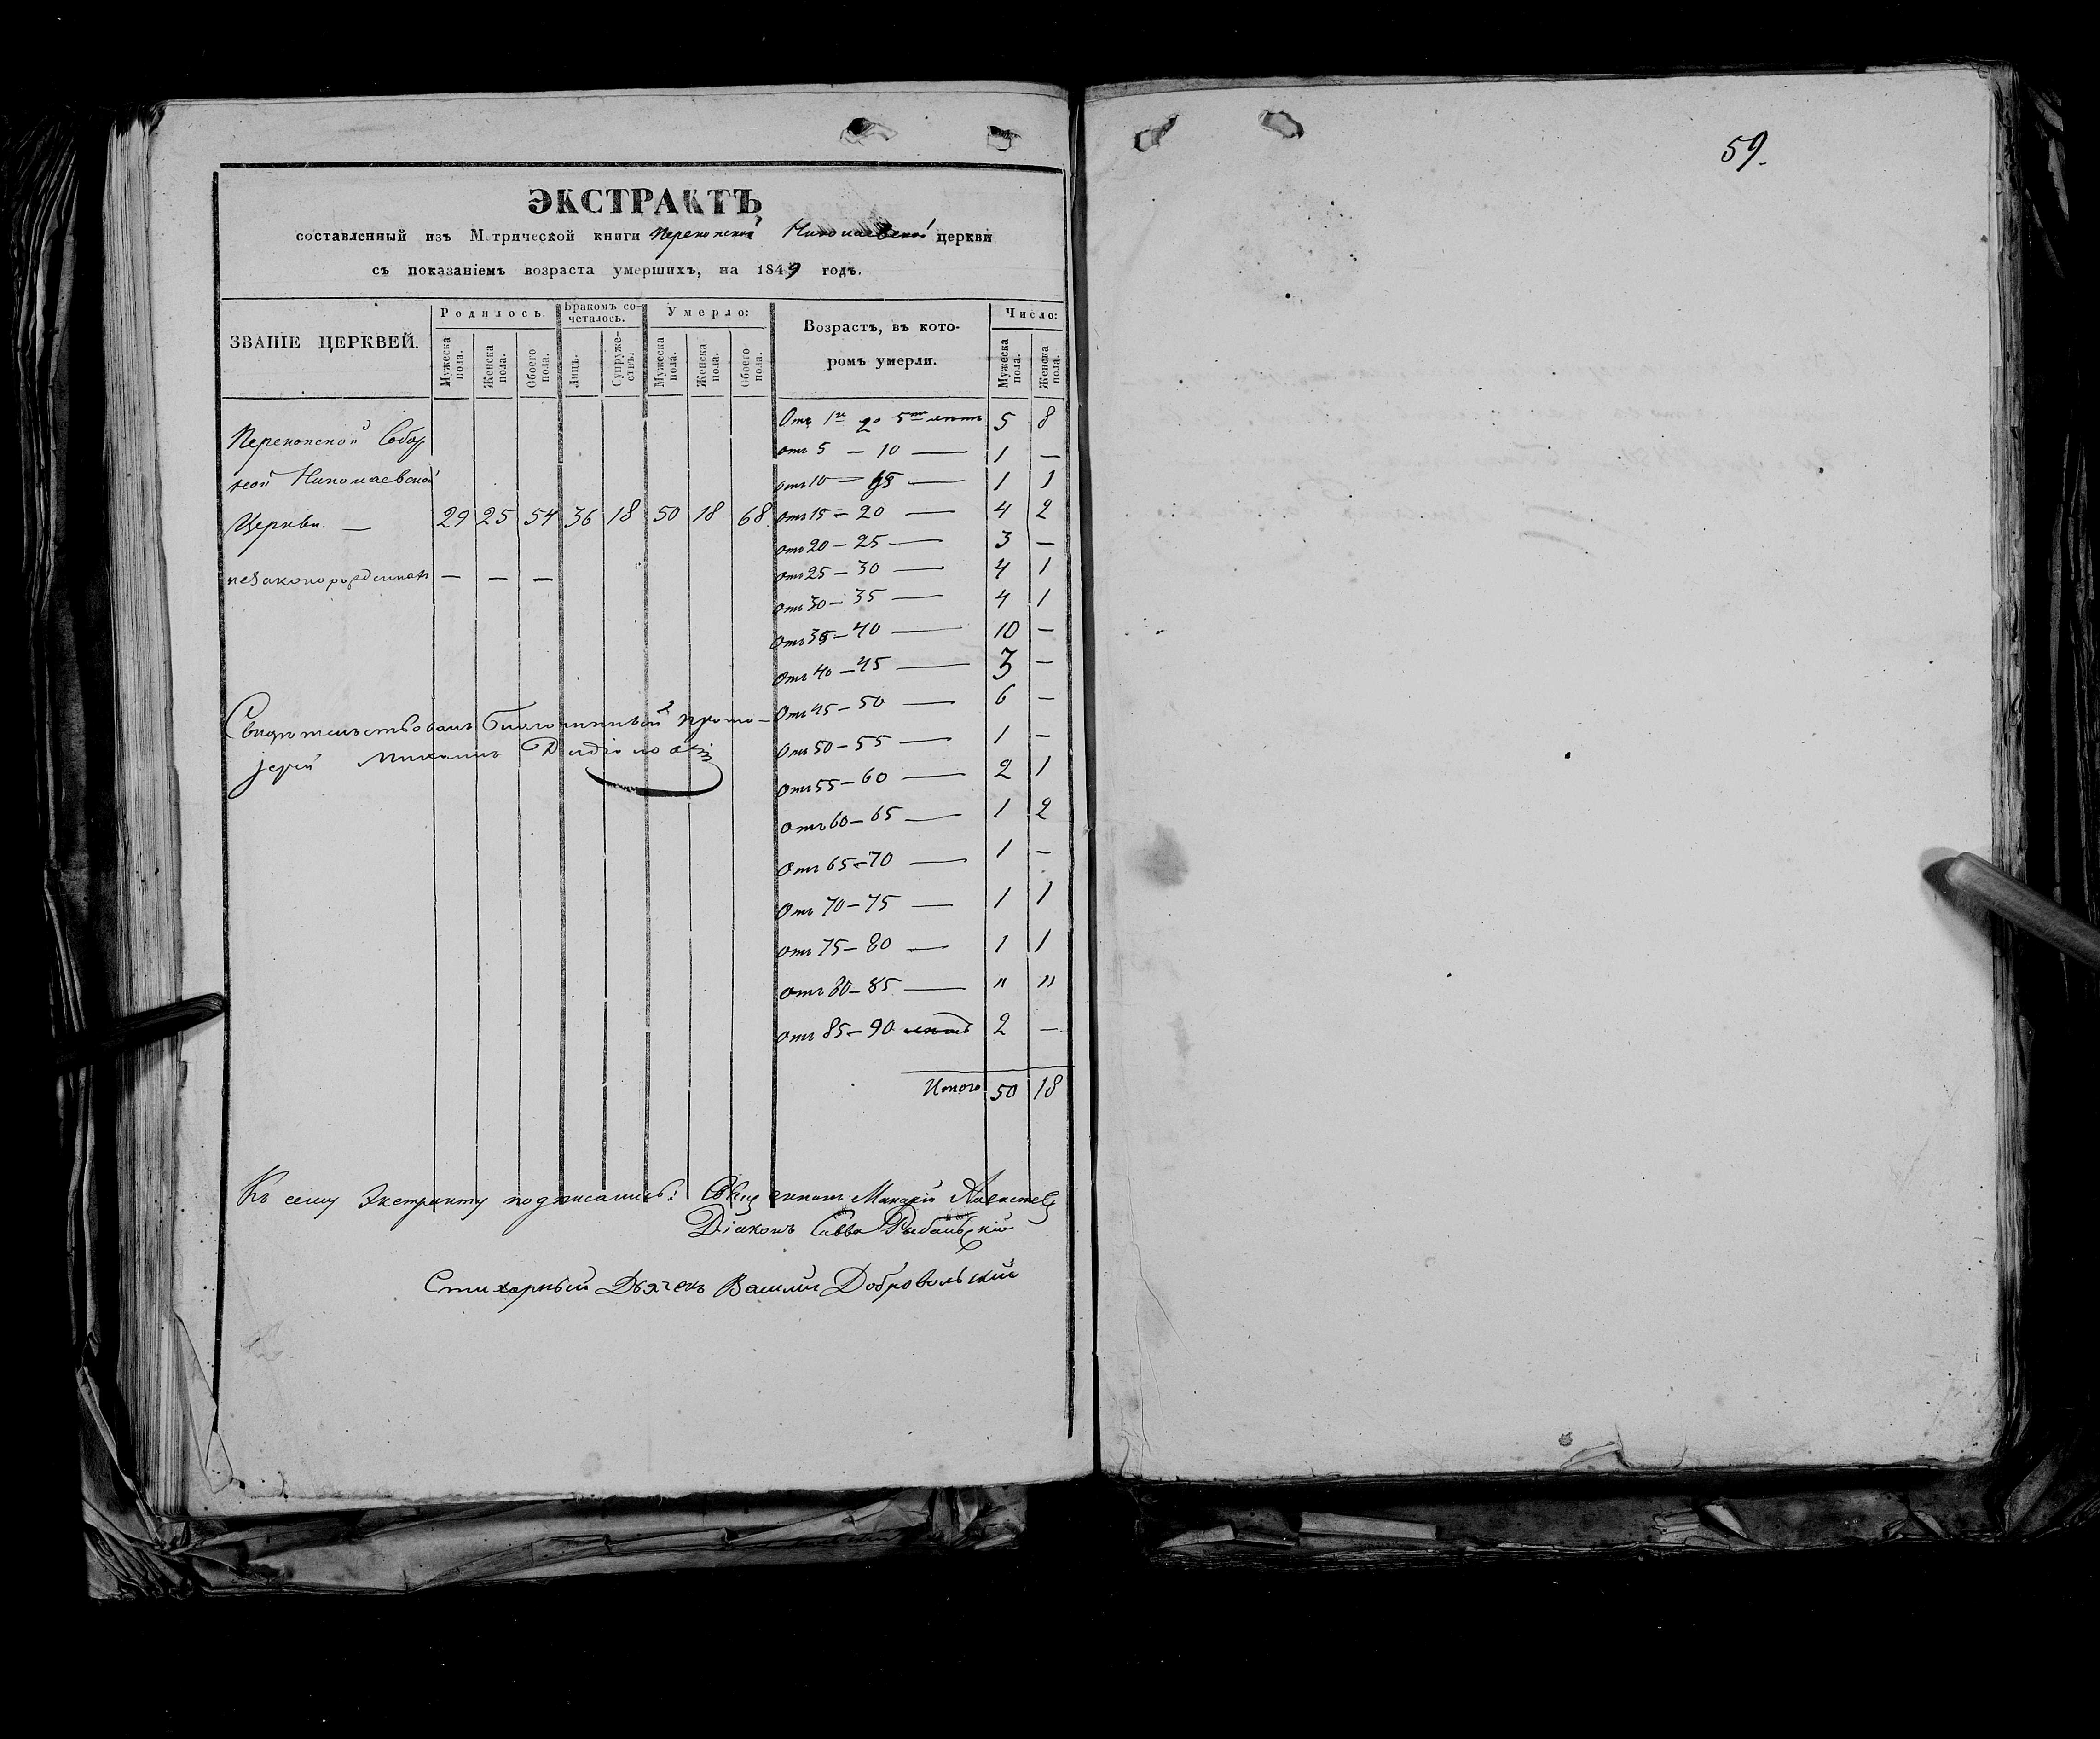 59.
ЭКСТРАКТЪ
составленный изъ Метрической книги Перекопской Николаевской церкви
съ показаніемъ возраста умершихъ, на 1849 годъ.
ЗВАНІЕ ЦЕРКВЕЙ. Родилось. Бракомъ со-четалось. Умерло: Возрастъ, въ кото-ромъ умерли. Число:
Мужеска пола. Женска пола. Обоего пола. Лицъ. Супруже-ствъ. Мужеска пола. Женска пола. Обоего пола. Мужеска пола. Женска пола.
Перекопской Собор
ной Николаевской
Церкви. — 29 25 54 36 18 50 18 68
незаконорожденныхъ — — —
Отъ 1го до 5ти лѣтъ 5 8
отъ 5 — 10 — 1 —
отъ 10 — 15 — 1 1
Отъ 15 — 20 — 4 2
отъ 20 — 25 — 3 —
отъ 25 — 30 — 4 1
отъ 30 — 35 — 4 1
отъ 35 — 40 — 10 —
отъ 40 — 45 — 3 —
Отъ 45 — 50 — 6 —
Отъ 50 — 55 — 1 —
Отъ 55 — 60 — 2 1
отъ 60 — 65 — 1 2
Отъ 65 — 70 — 1 —
Отъ 70 — 75 — 1 1
отъ 75 — 80 — 1 1
отъ 80 — 85 — " "
отъ 85 — 90 лѣтъ 2 —
Итого 50 18
Свидѣтельствовалъ Благочинный Прото-
іерей Михаилъ
Къ сему Экстракту подписались: Священникъ Макарій
Діаконъ Савва Рыбальскій
Стихарный Дьячекъ Василій Добровольский